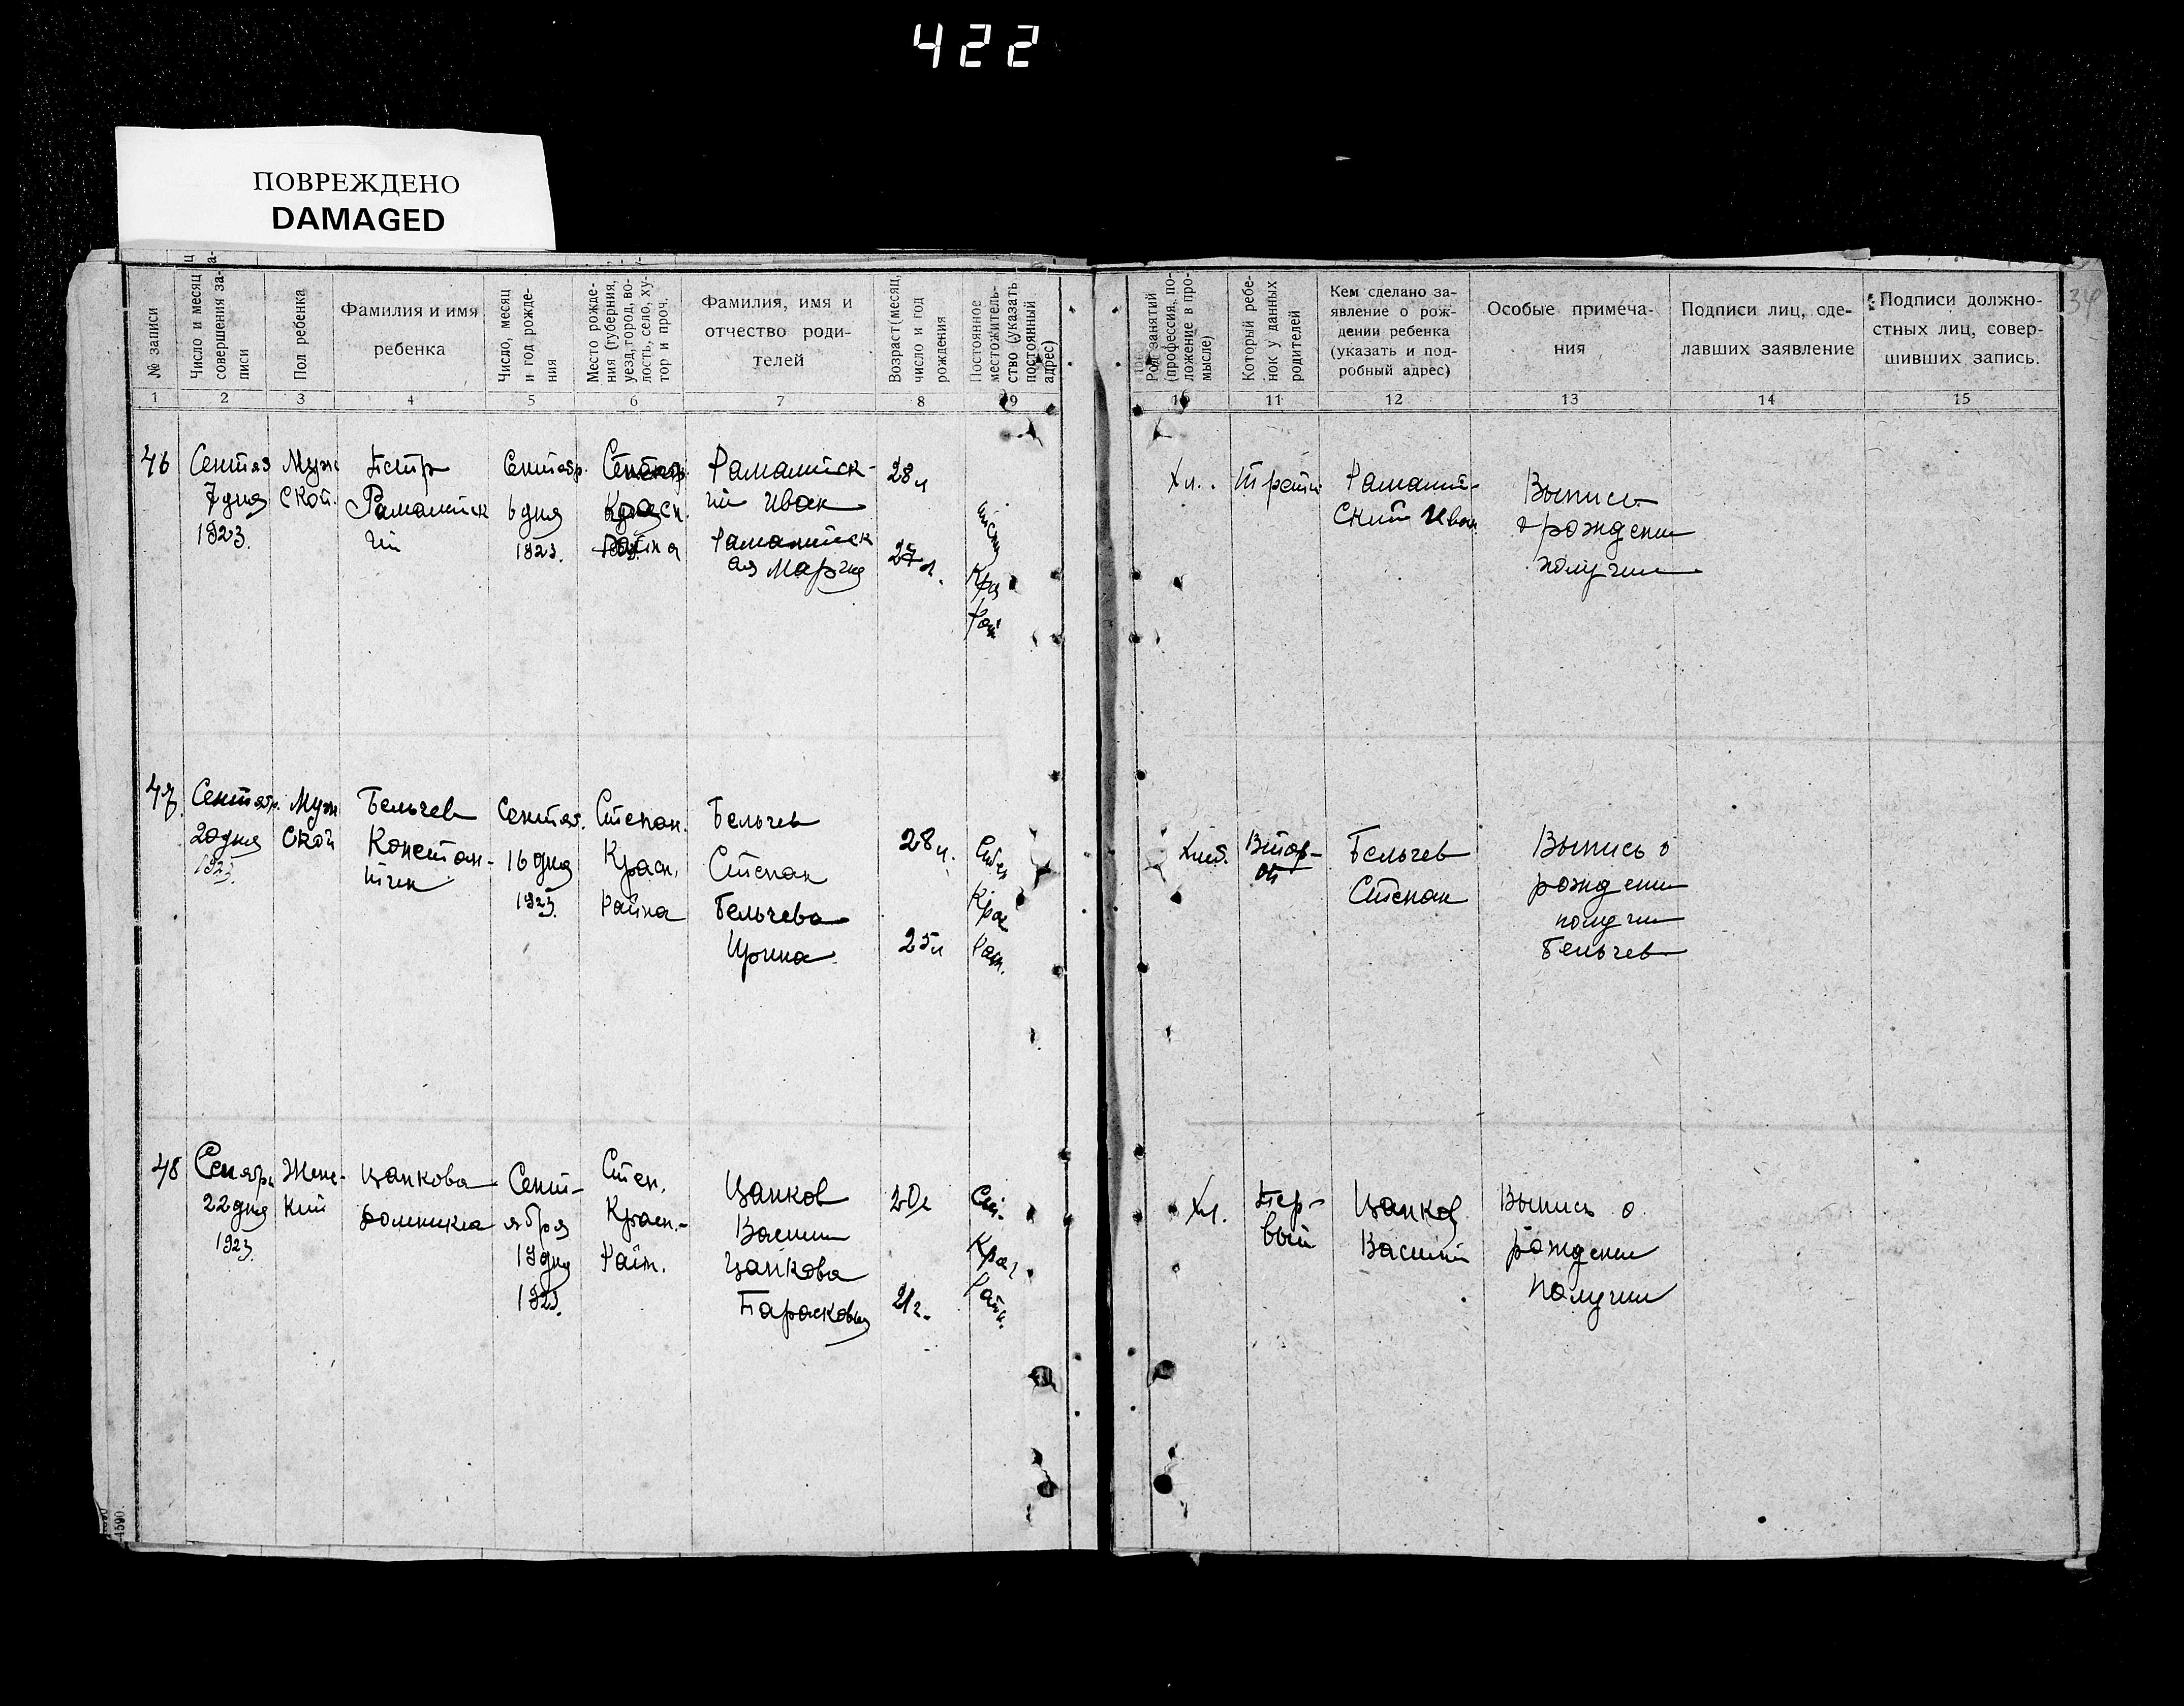 422
ПОВРЕЖДЕНО
DAMAGED
34
№ записи
Число и месяц
совершения за-
писи
Пол ребенка
Фамилия и имя
ребенка
Число, месяц
и год рожде-
ния
Место рожде-
ния (губерния,
уезд, город, во-
лость, село, ху-
тор и проч.
Фамилия, имя и
отчество роди-
телей
Возраст (месяц,
число и год
рождения
Постоянное
местожитель-
ство (указать
постоянный
адрес)
Род занятий
(профессия, по-
ложение в про-
мысле)
Который ребе-
нок у данных
родителей
Кем сделано за-
явление о рож-
дении ребенка
(указать и под-
робный адрес)
Особые примеча-
ния
Подписи лиц, сде-
лавших заявление
Подписи должно-
стных лиц, совер-
шивших запись.
1 2 3 4 5 6 7 8 9 10 11 12 13 14 15
46
Сентяб
7 дня
1923.
Муж
ской.
Петр
Рамалийск
ий
Сентябр.
6 дня
1923.
Красн.
Района
Рамалийск-
ий Иван
Рамалийск
ая Мария
28 л
27 л.
Кра
Рай
Хл.
Третий
Рамалий-
ский Иван
Выпись
о рождении
получил
47
Сентябр.
20 дня
1923.
Муж
ской
Бельчев
Констан-
тин
Сентяб.
16 дня
1923.
Степан.
Красн.
Района
Бельчев
Степан
Бельчева
Ирина
28 л.
25 л
Степ
Кра
Рай.
Хлеб.
Втор-
ой
Бельчев
Степан
Выпись о
рождении
получил
Бельчев
48
Сенябрь
22 дня
1923.
Женс-
кий
Цанкова
Домникия
Сент-
ября
19 дня
1923.
Степ.
Красн.
Район.
Цанков
Василий
Цанкова
Парасковия
20 л
21 г.
Сте.
Крас
Райн.
Хл.
Пер-
вый
Цанков
Василий
Выпись о
рождении
Получил
4590.